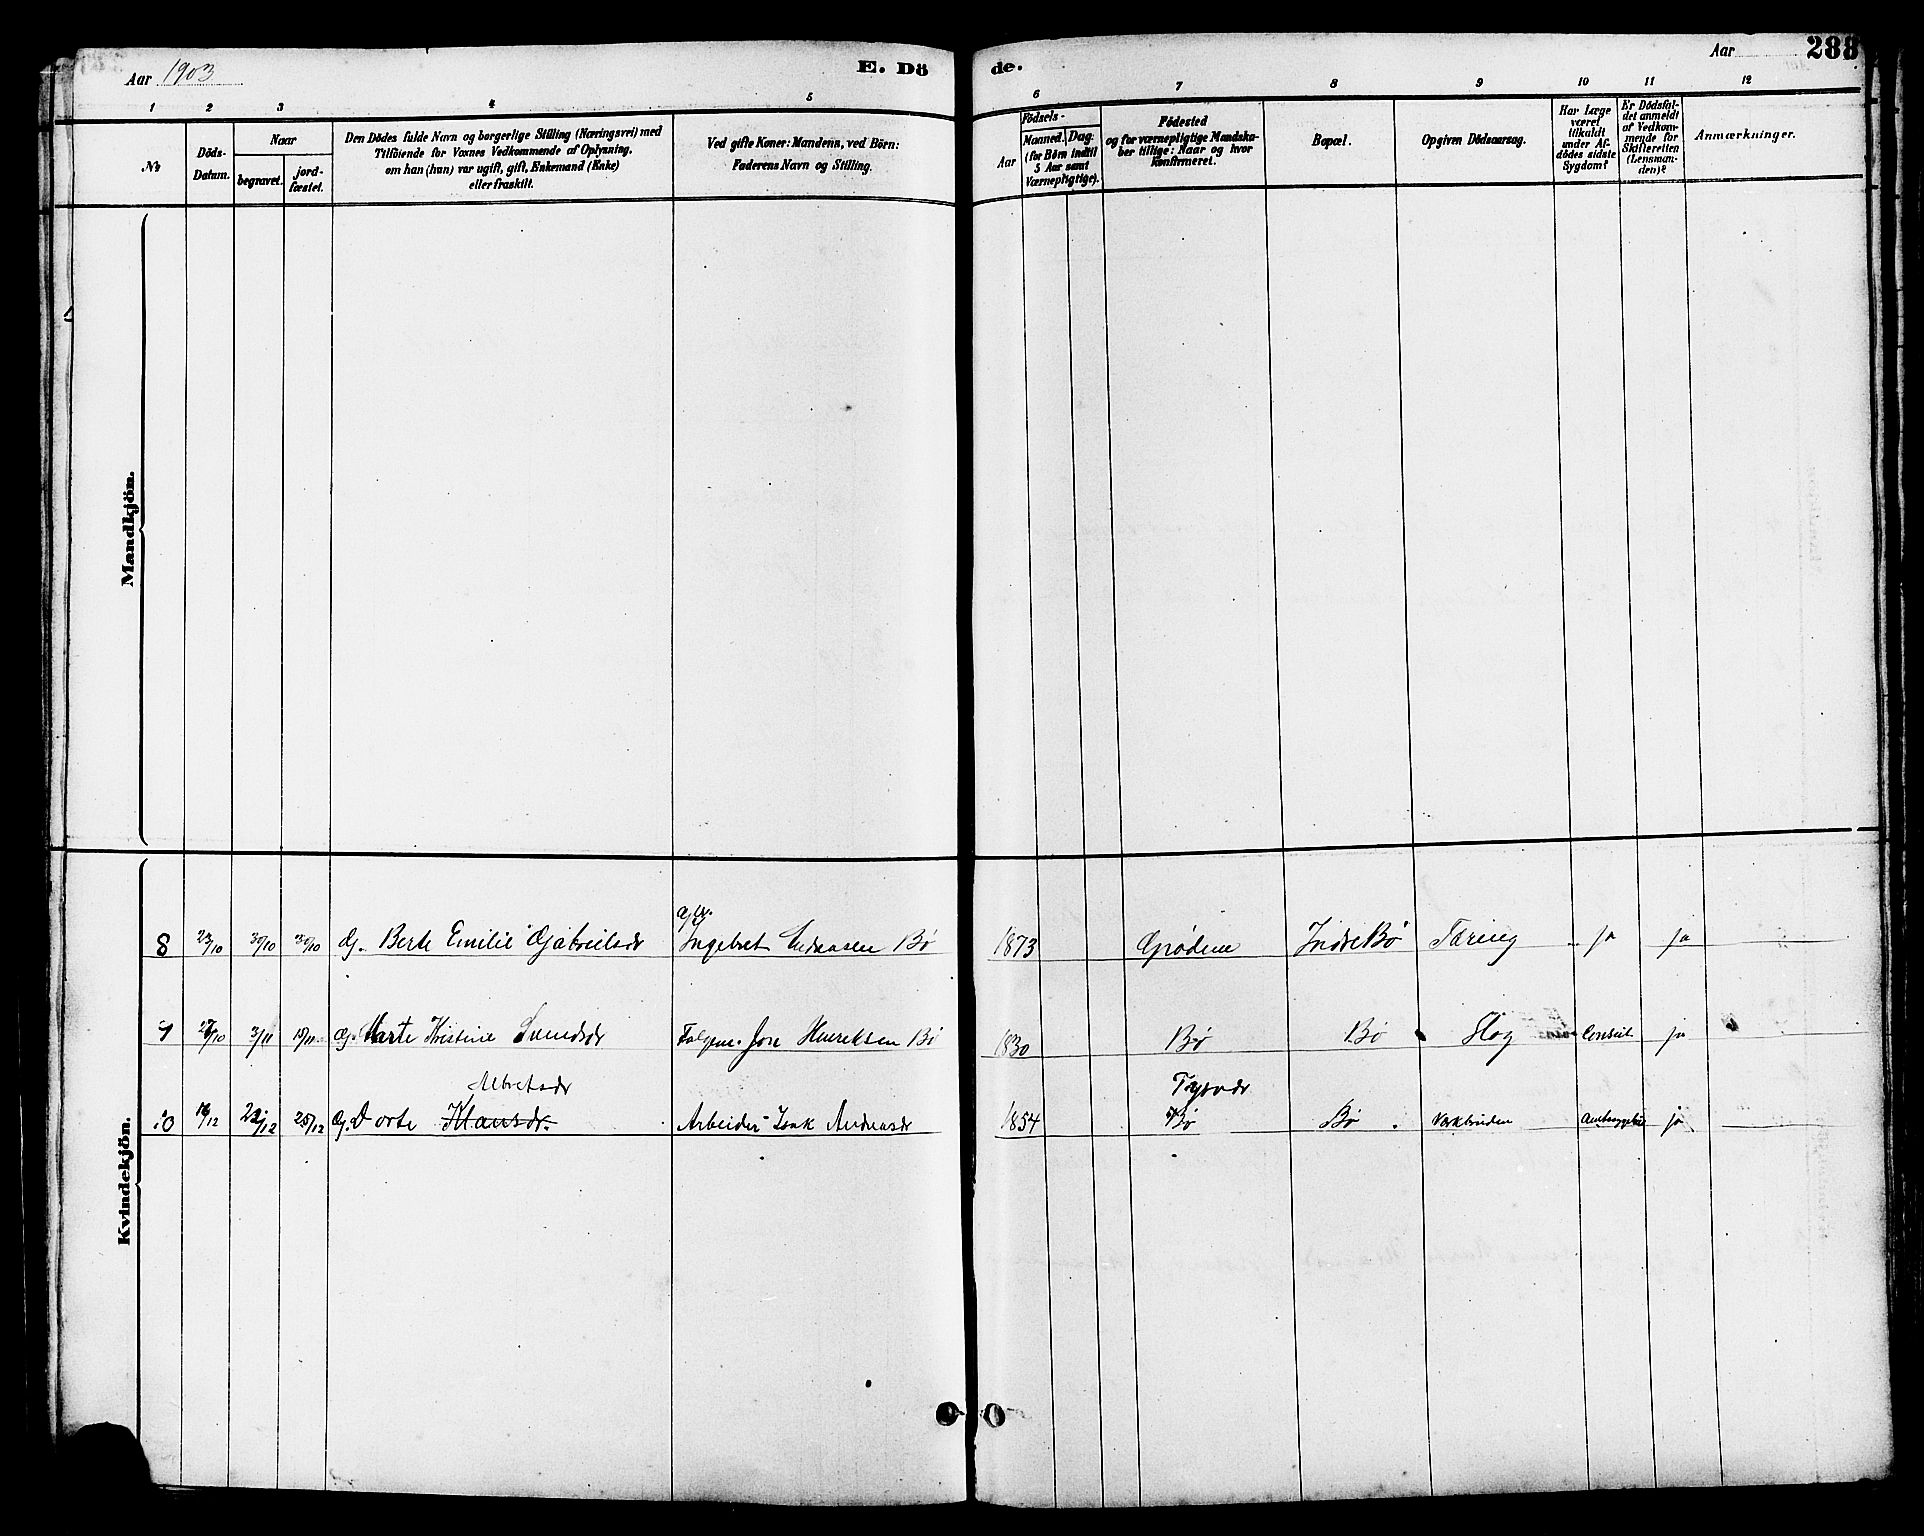 Aar 1903
E. Dö
de.
Aar
288
1 2 3 4 5 6 7 8 9 10 11 12
No
Döds-Datum.
Naar
begravet.
jord-fæstet.
Den Dödes fulde Navn og borgerlige Stilling (Næringsvei) med
Tilföiende for Voxnes Vedkommende af Oplysning,
om han (hun) var ugift, gift, Enkemand (Enke)
eller fraskilt.
Ved gifte Koner: Mandens, ved Börn:
Faderens Navn og Stilling.
Födsels-
Aar
Maaned.
Dag:
(for Börn indtil
5 Aar samt
Værnepligtige).
Födested
og for værnepligtige Mandska-
ber tillige: Naar og hvor
konfirmeret.
Bopæl.
Opgiven Dödsaarsag.
Har Læge
været
tilkaldt
under Af-
dödes sidste
Sygdom?
Er Dödsfal-
det anmeldt
af Vedkom-
mende for
Skifteretten
(Lensman-
den)?
Anmærkninger.
Mandkjön.
Kvindekjön.
8 23/10 30/10 30/10 G. Berte Emilie Gabrielsdr Ingebret Andreasen Bø 1873 Grødem Indre Bø Tæring ja ja
9 27/10 3/11 15/11 G. Marte Kristine Svendsdr Jon Henriksen Bø 1830 Bø Bø Slag ja
Albretsdr
Tysvær
10 16/12 22/12 25/12 G. Dorte Klausdr. Arbeider Isak Andreasdr 1854 Bø Bø ja